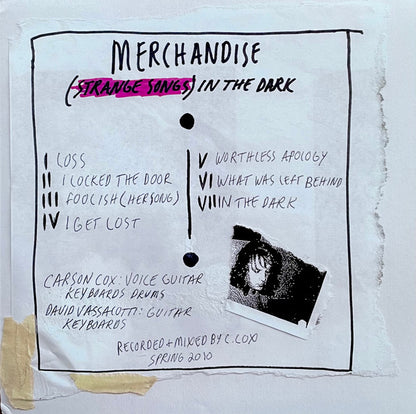 MERCHANDISE
(STRANGE SONGS) IN THE DARK
I LOSS
II I LOCKED THE DOOR
III FOOLISH (HER SONG)
IV I GET LOST
V WORTHLESS APOLOGY
VI WHAT WAS LEFT BEHIND
VII IN THE DARK
CARSON COX: VOICE GUITAR
KEYBOARDS DRUMS
DAVID VASSALOTTI: GUITAR
KEYBOARDS
RECORDED + MIXED BY C. COX
SPRING 2010